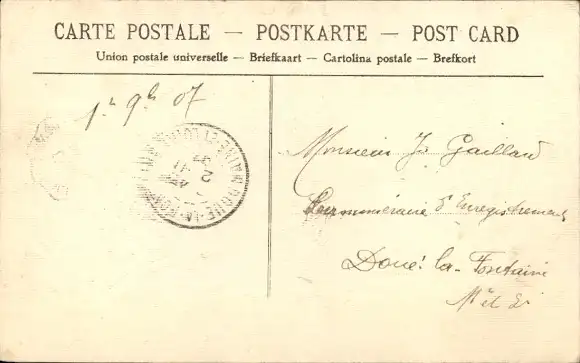 CARTE POSTALE — POSTKARTE — POST CARD
Union postale universelle — Briefkaart — Cartolina postale — Brefkort
1er 9b 07
Monsieur J. Gaillard
Surnuméraire d'Enregistrement
Doué-la-Fontaine
M et L